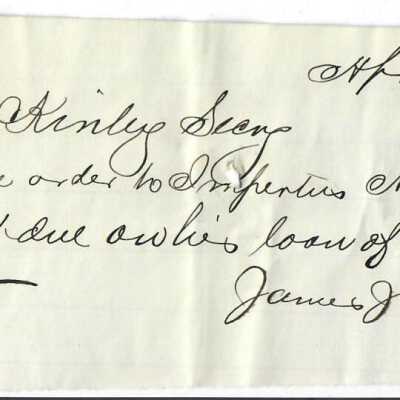 Ap
Kinley Secy
order to Impertus
due on his loan of
James J